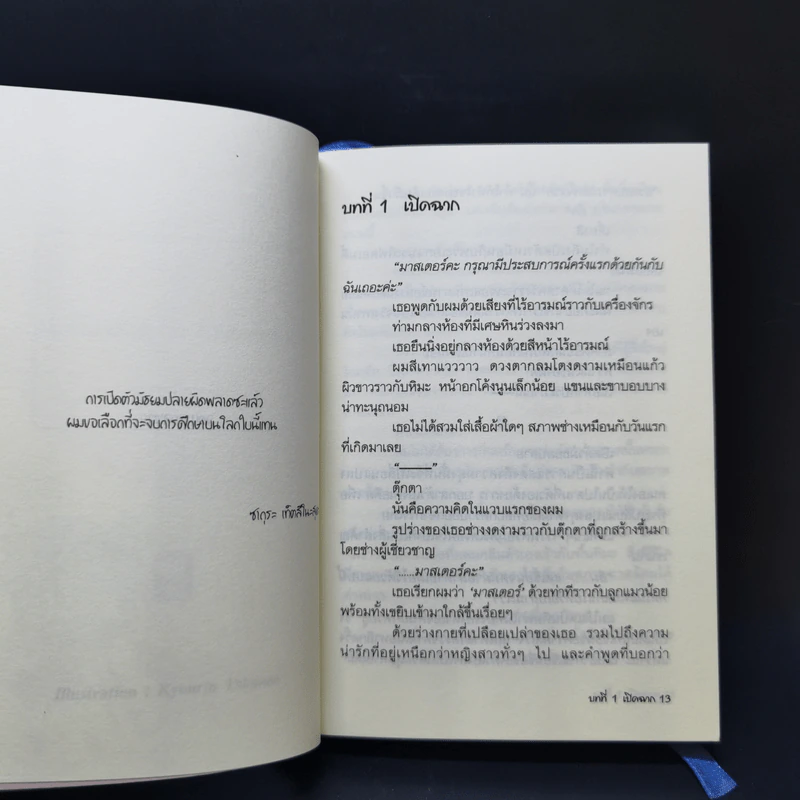 การเปิดตัวมัธยมปลายผิดพลาดซะแล้ว
ผมขอเลือกที่จะจบการศึกษาบนโลกใบนี้แทน
ซากุระ
บทที่ 1 เปิดฉาก
“มาสเตอร์คะ กรุณามีประสบการณ์ครั้งแรกด้วยกันกับ
ฉันเถอะค่ะ”
เธอพูดกับผมด้วยเสียงที่ไร้อารมณ์ราวกับเครื่องจักร
ท่ามกลางห้องที่มีเศษหินร่วงลงมา
เธอยืนนิ่งอยู่กลางห้องด้วยสีหน้าไร้อารมณ์
ผมสีเทาแวววาว ดวงตากลมโตงดงามเหมือนแก้ว
ผิวขาวราวกับหิมะ หน้าอกโค้งนูนเล็กน้อย แขนและขาบอบบาง
น่าทะนุถนอม
เธอไม่ได้สวมใส่เสื้อผ้าใดๆ สภาพช่างเหมือนกับวันแรก
ที่เกิดมาเลย
“———”
ตุ๊กตา
นั่นคือความคิดในแวบแรกของผม
รูปร่างของเธอช่างงดงามราวกับตุ๊กตาที่ถูกสร้างขึ้นมา
โดยช่างผู้เชี่ยวชาญ
“……มาสเตอร์คะ”
เธอเรียกผมว่า ‘มาสเตอร์’ ด้วยท่าทีราวกับลูกแมวน้อย
พร้อมทั้งเขยิบเข้ามาใกล้ขึ้นเรื่อยๆ
ด้วยร่างกายที่เปลือยเปล่าของเธอ รวมไปถึงความ
น่ารักที่อยู่เหนือกว่าหญิงสาวทั่วๆ ไป และคำพูดที่บอกว่า
บทที่ 1 เปิดฉาก 13